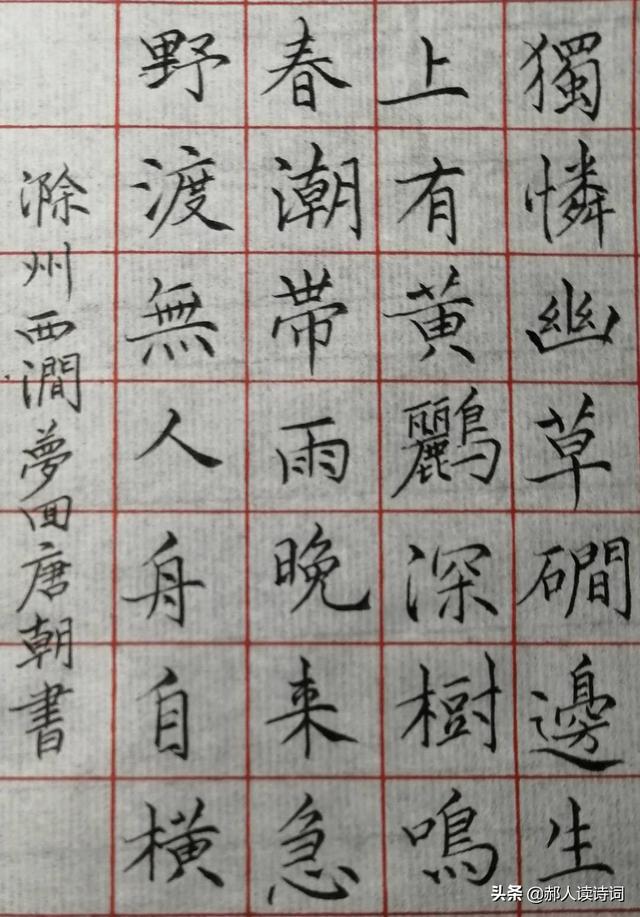 獨憐幽草磵邊生
上有黃鸝深樹鳴
春潮帶雨晚来急
野渡無人舟自橫
滁州西澗夢回唐朝書
头条@郝人读诗词